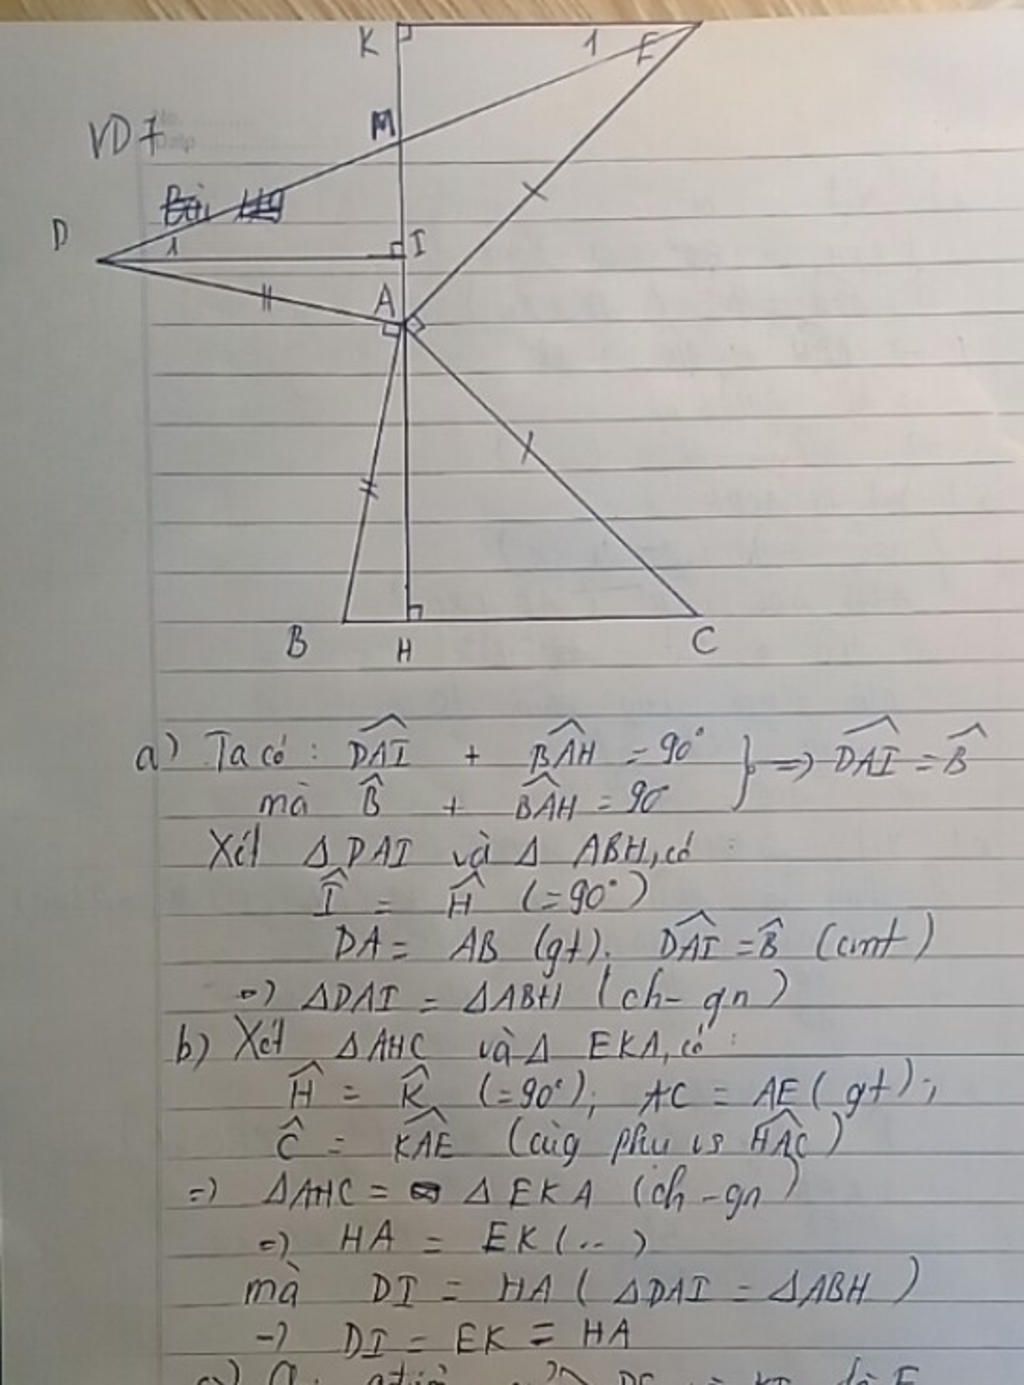 K 1 E
M
VD7
D 1 I
A
B H C
a) Ta có : DAI + BAH = 90° } => DAI = B
mà B + BAH = 90°
Xét Δ DAI và Δ ABH, có :
I = H (=90°)
DA = AB (gt). DAI = B (cmt)
=) ΔDAI = ΔABH (ch - gn)
b) Xét ΔAHC và Δ EKA, có :
H = K (=90°); AC = AE (gt);
C = KAE (cùg phụ vs HAC)
=) ΔAHC = Δ EKA (ch - gn)
=) HA = EK (...)
mà DI = HA ( ΔDAI = ΔABH )
=) DI = EK = HA